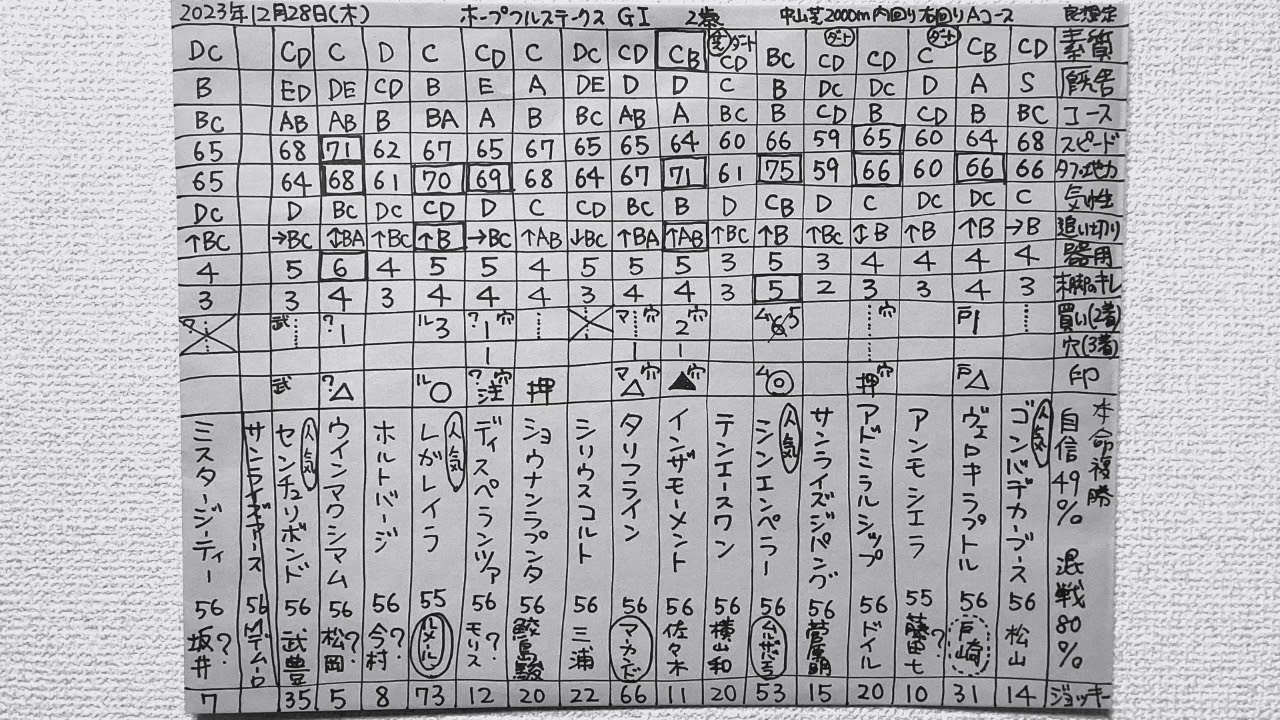 2023年12月28日(木) ホープフルステークス GI 2歳 中山芝2000m内回り右回りAコース 良想定
DC CD C D C CD C DC CD CB 芝ダート CD BC ダート CD CD ダート C CB CD 素質
B ED DE CD B E A DE D D C B DC DC D A S 厩舎
BC AB AB B BA A B BC AB A BC B CD B CD B BC コース
65 68 71 62 67 65 67 65 65 64 60 66 59 65 60 64 68 スピード
65 64 68 61 70 69 68 64 67 71 61 75 59 66 60 66 66 タフ・地力
DC D BC DC CD D C CD BC B D CB D C DC DC C 気性
↑BC →BC ↕BA ↑BC ↑B →BC ↑AB ↓BC ↑BA ↑AB ↑BC ↑B ↑BC ↕B ↑B ↑B →B 追い切り
4 5 6 4 5 5 4 5 5 5 3 5 3 4 4 4 4 器用
3 3 4 3 4 4 4 3 4 4 3 5 2 3 3 4 3 末脚のキレ
? 武 ?1 ル3 ?1穴 マ穴 2穴 ム 5 穴 戸1 買い(2着)
1 1 1 穴(3着)
武 ?△ ル○ ?注穴 押 マ△穴 ▲穴 ム◎ 押穴 戸△ 印
本命複勝
自信49% 混戦80%
ゴンバデカーブース 人気 56 松山
ヴェロキラプトル 56 戸崎
アンモシエラ 55 藤田七?
アドミラルシップ 56 ドイル
サンライズジパング 56 菅原明
シンエンペラー 人気 56 ムルザバエフ
テンエースワン 56 横山和
インザモーメント 56 佐々木
タリフライン 56 マーカンド
シリウスコルト 56 三浦
ショウナンラプンタ 56 鮫島駿
ディスペランツァ 56 モリス?
レガレイラ 人気 55 ルメール
ホルトバージ 56 今村?
ウインマクシマム 56 松岡?
センチュリボンド 人気 56 武豊
サンライズアース 56 Mデムーロ
ミスタージーティー 56 坂井?
7 35 5 8 73 12 20 22 66 11 20 53 15 20 10 31 14 ジョッキー